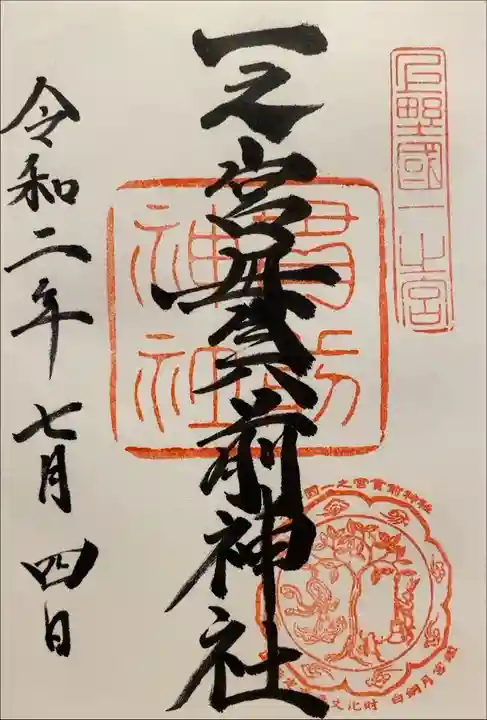 上野國一之宮
一之宮貫前神社
貫前神社
令和二年七月四日
國一之宮貫前神社
文化財 白銅月宮鑑